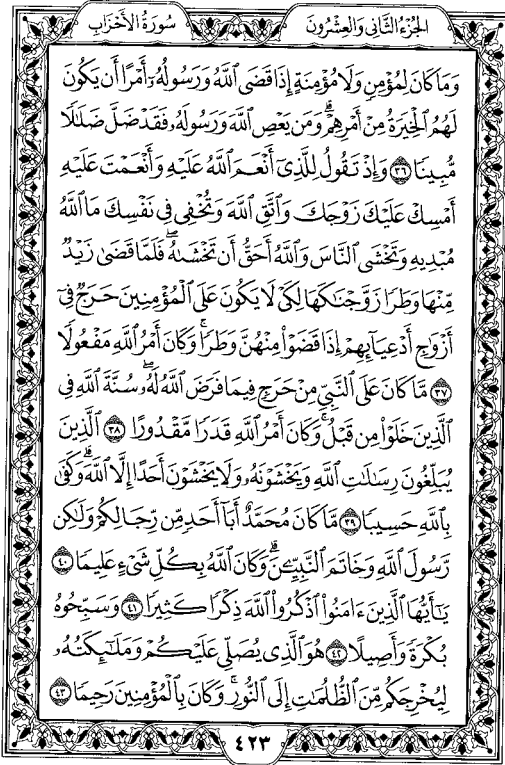 الجزء الثاني والعشرون
سورة الأحزاب
وَمَا كَانَ لِمُؤْمِنٍ وَلَا مُؤْمِنَةٍ إِذَا قَضَى ٱللَّهُ وَرَسُولُهُۥٓ أَمْرًا أَن يَكُونَ
لَهُمُ ٱلْخِيَرَةُ مِنْ أَمْرِهِمْ ۗ وَمَن يَعْصِ ٱللَّهَ وَرَسُولَهُۥ فَقَدْ ضَلَّ ضَلَٰلًا
مُّبِينًا ٣٦ وَإِذْ تَقُولُ لِلَّذِىٓ أَنْعَمَ ٱللَّهُ عَلَيْهِ وَأَنْعَمْتَ عَلَيْهِ
أَمْسِكْ عَلَيْكَ زَوْجَكَ وَٱتَّقِ ٱللَّهَ وَتُخْفِى فِى نَفْسِكَ مَا ٱللَّهُ
مُبْدِيهِ وَتَخْشَى ٱلنَّاسَ وَٱللَّهُ أَحَقُّ أَن تَخْشَىٰهُ ۖ فَلَمَّا قَضَىٰ زَيْدٌ
مِّنْهَا وَطَرًا زَوَّجْنَٰكَهَا لِكَىْ لَا يَكُونَ عَلَى ٱلْمُؤْمِنِينَ حَرَجٌ فِىٓ
أَزْوَٰجِ أَدْعِيَآئِهِمْ إِذَا قَضَوْا۟ مِنْهُنَّ وَطَرًا ۚ وَكَانَ أَمْرُ ٱللَّهِ مَفْعُولًا
٣٧ مَّا كَانَ عَلَى ٱلنَّبِىِّ مِنْ حَرَجٍ فِيمَا فَرَضَ ٱللَّهُ لَهُۥ ۖ سُنَّةَ ٱللَّهِ فِى
ٱلَّذِينَ خَلَوْا۟ مِن قَبْلُ ۚ وَكَانَ أَمْرُ ٱللَّهِ قَدَرًا مَّقْدُورًا ٣٨ ٱلَّذِينَ
يُبَلِّغُونَ رِسَٰلَٰتِ ٱللَّهِ وَيَخْشَوْنَهُۥ وَلَا يَخْشَوْنَ أَحَدًا إِلَّا ٱللَّهَ ۗ وَكَفَىٰ
بِٱللَّهِ حَسِيبًا ٣٩ مَّا كَانَ مُحَمَّدٌ أَبَآ أَحَدٍ مِّن رِّجَالِكُمْ وَلَٰكِن
رَّسُولَ ٱللَّهِ وَخَاتَمَ ٱلنَّبِيِّـۧنَ ۗ وَكَانَ ٱللَّهُ بِكُلِّ شَىْءٍ عَلِيمًا ٤٠
يَٰٓأَيُّهَا ٱلَّذِينَ ءَامَنُوا۟ ٱذْكُرُوا۟ ٱللَّهَ ذِكْرًا كَثِيرًا ٤١ وَسَبِّحُوهُ
بُكْرَةً وَأَصِيلًا ٤٢ هُوَ ٱلَّذِى يُصَلِّى عَلَيْكُمْ وَمَلَٰٓئِكَتُهُۥ
لِيُخْرِجَكُم مِّنَ ٱلظُّلُمَٰتِ إِلَى ٱلنُّورِ ۚ وَكَانَ بِٱلْمُؤْمِنِينَ رَحِيمًا ٤٣
٤٢٣